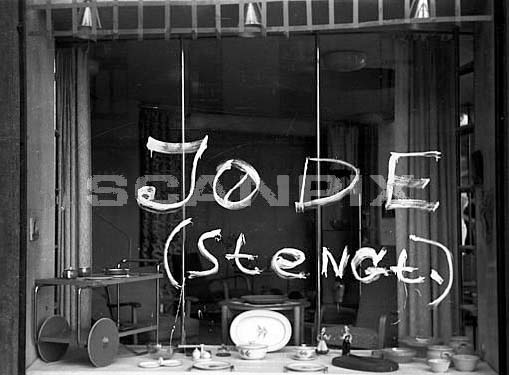 JØDE
(StENGt.)
SCANPIX